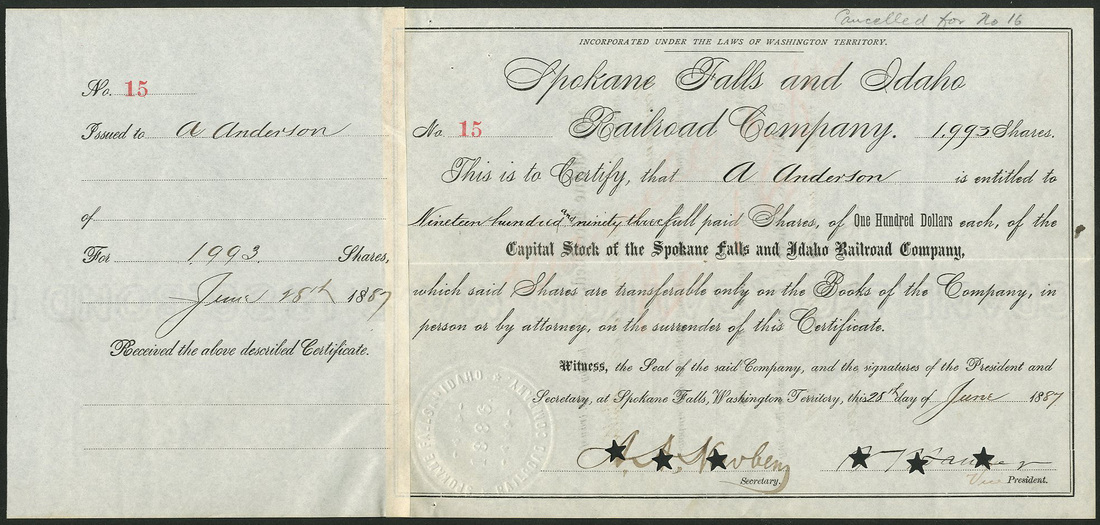 Cancelled for No 16
No. 15
Issued to A Anderson
of
For 1,993 Shares,
June 28th 1887
Received the above described Certificate.
INCORPORATED UNDER THE LAWS OF WASHINGTON TERRITORY.
Spokane Falls and Idaho
No. 15 Railroad Company. 1,993 Shares.
This is to Certify, that A Anderson is entitled to
Nineteen hundred and ninety three full paid Shares, of One Hundred Dollars each, of the
Capital Stock of the Spokane Falls and Idaho Railroad Company,
which said Shares are transferable only on the Books of the Company, in
person or by attorney, on the surrender of this Certificate.
Witness, the Seal of the said Company, and the signatures of the President and
Secretary, at Spokane Falls, Washington Territory, this 28th day of June 1887
A. A. Newbery
Secretary.
Vice President.